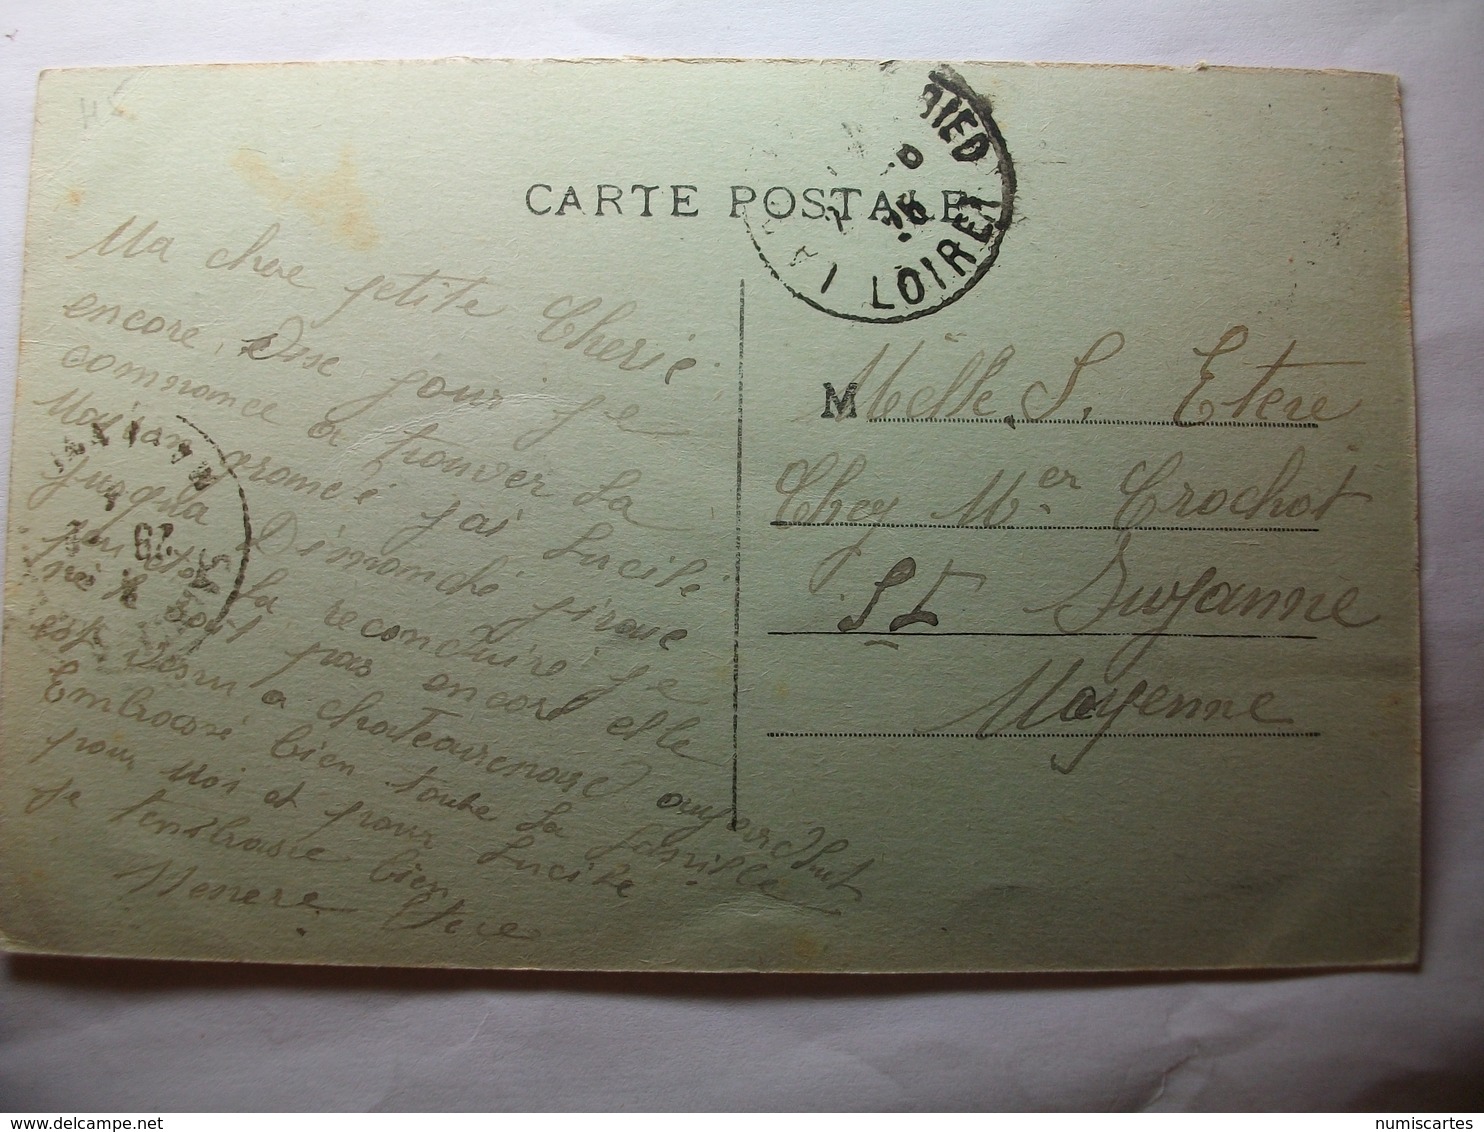 CARTE POSTALE
RIED
LOIRET
Ma chere petite Cherie
encore Onse jour je
commance a trouver la
jai Lucile
jusqua Dimanche jirais
la reconduire je
pas encore elle
est a chateaurenard aujourdhut
Embrasse bien toute la famille
pour Moi et pour Lucile
je tembrasse bien
Etere
M Melle. S. Etere
Chez Mer Crochot
St Suzanne
Mayenne
numiscartes